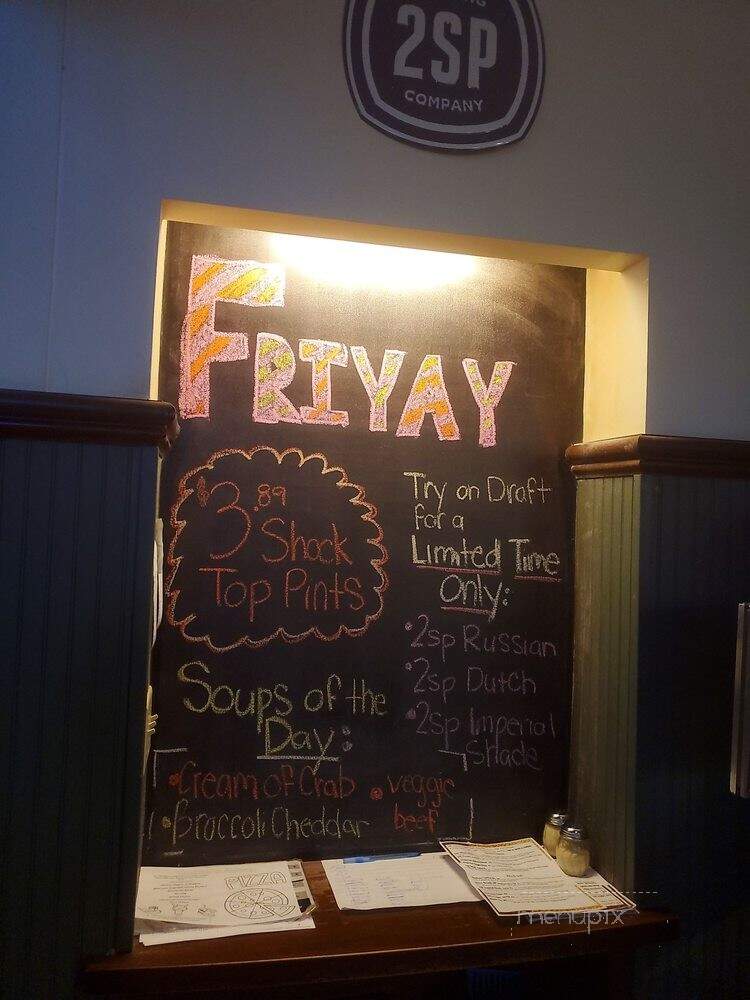 2SP
COMPANY
FRIYAY
$3.89
Shock
Top Pints
Try on Draft
for a
Limited Time
Only:
• 2sp Russian
• 2sp Dutch
• 2sp Imperial
Shade
Soups of the
Day:
• Cream of Crab
• Broccoli Cheddar
• veggie
beef
PIZZA
menupix